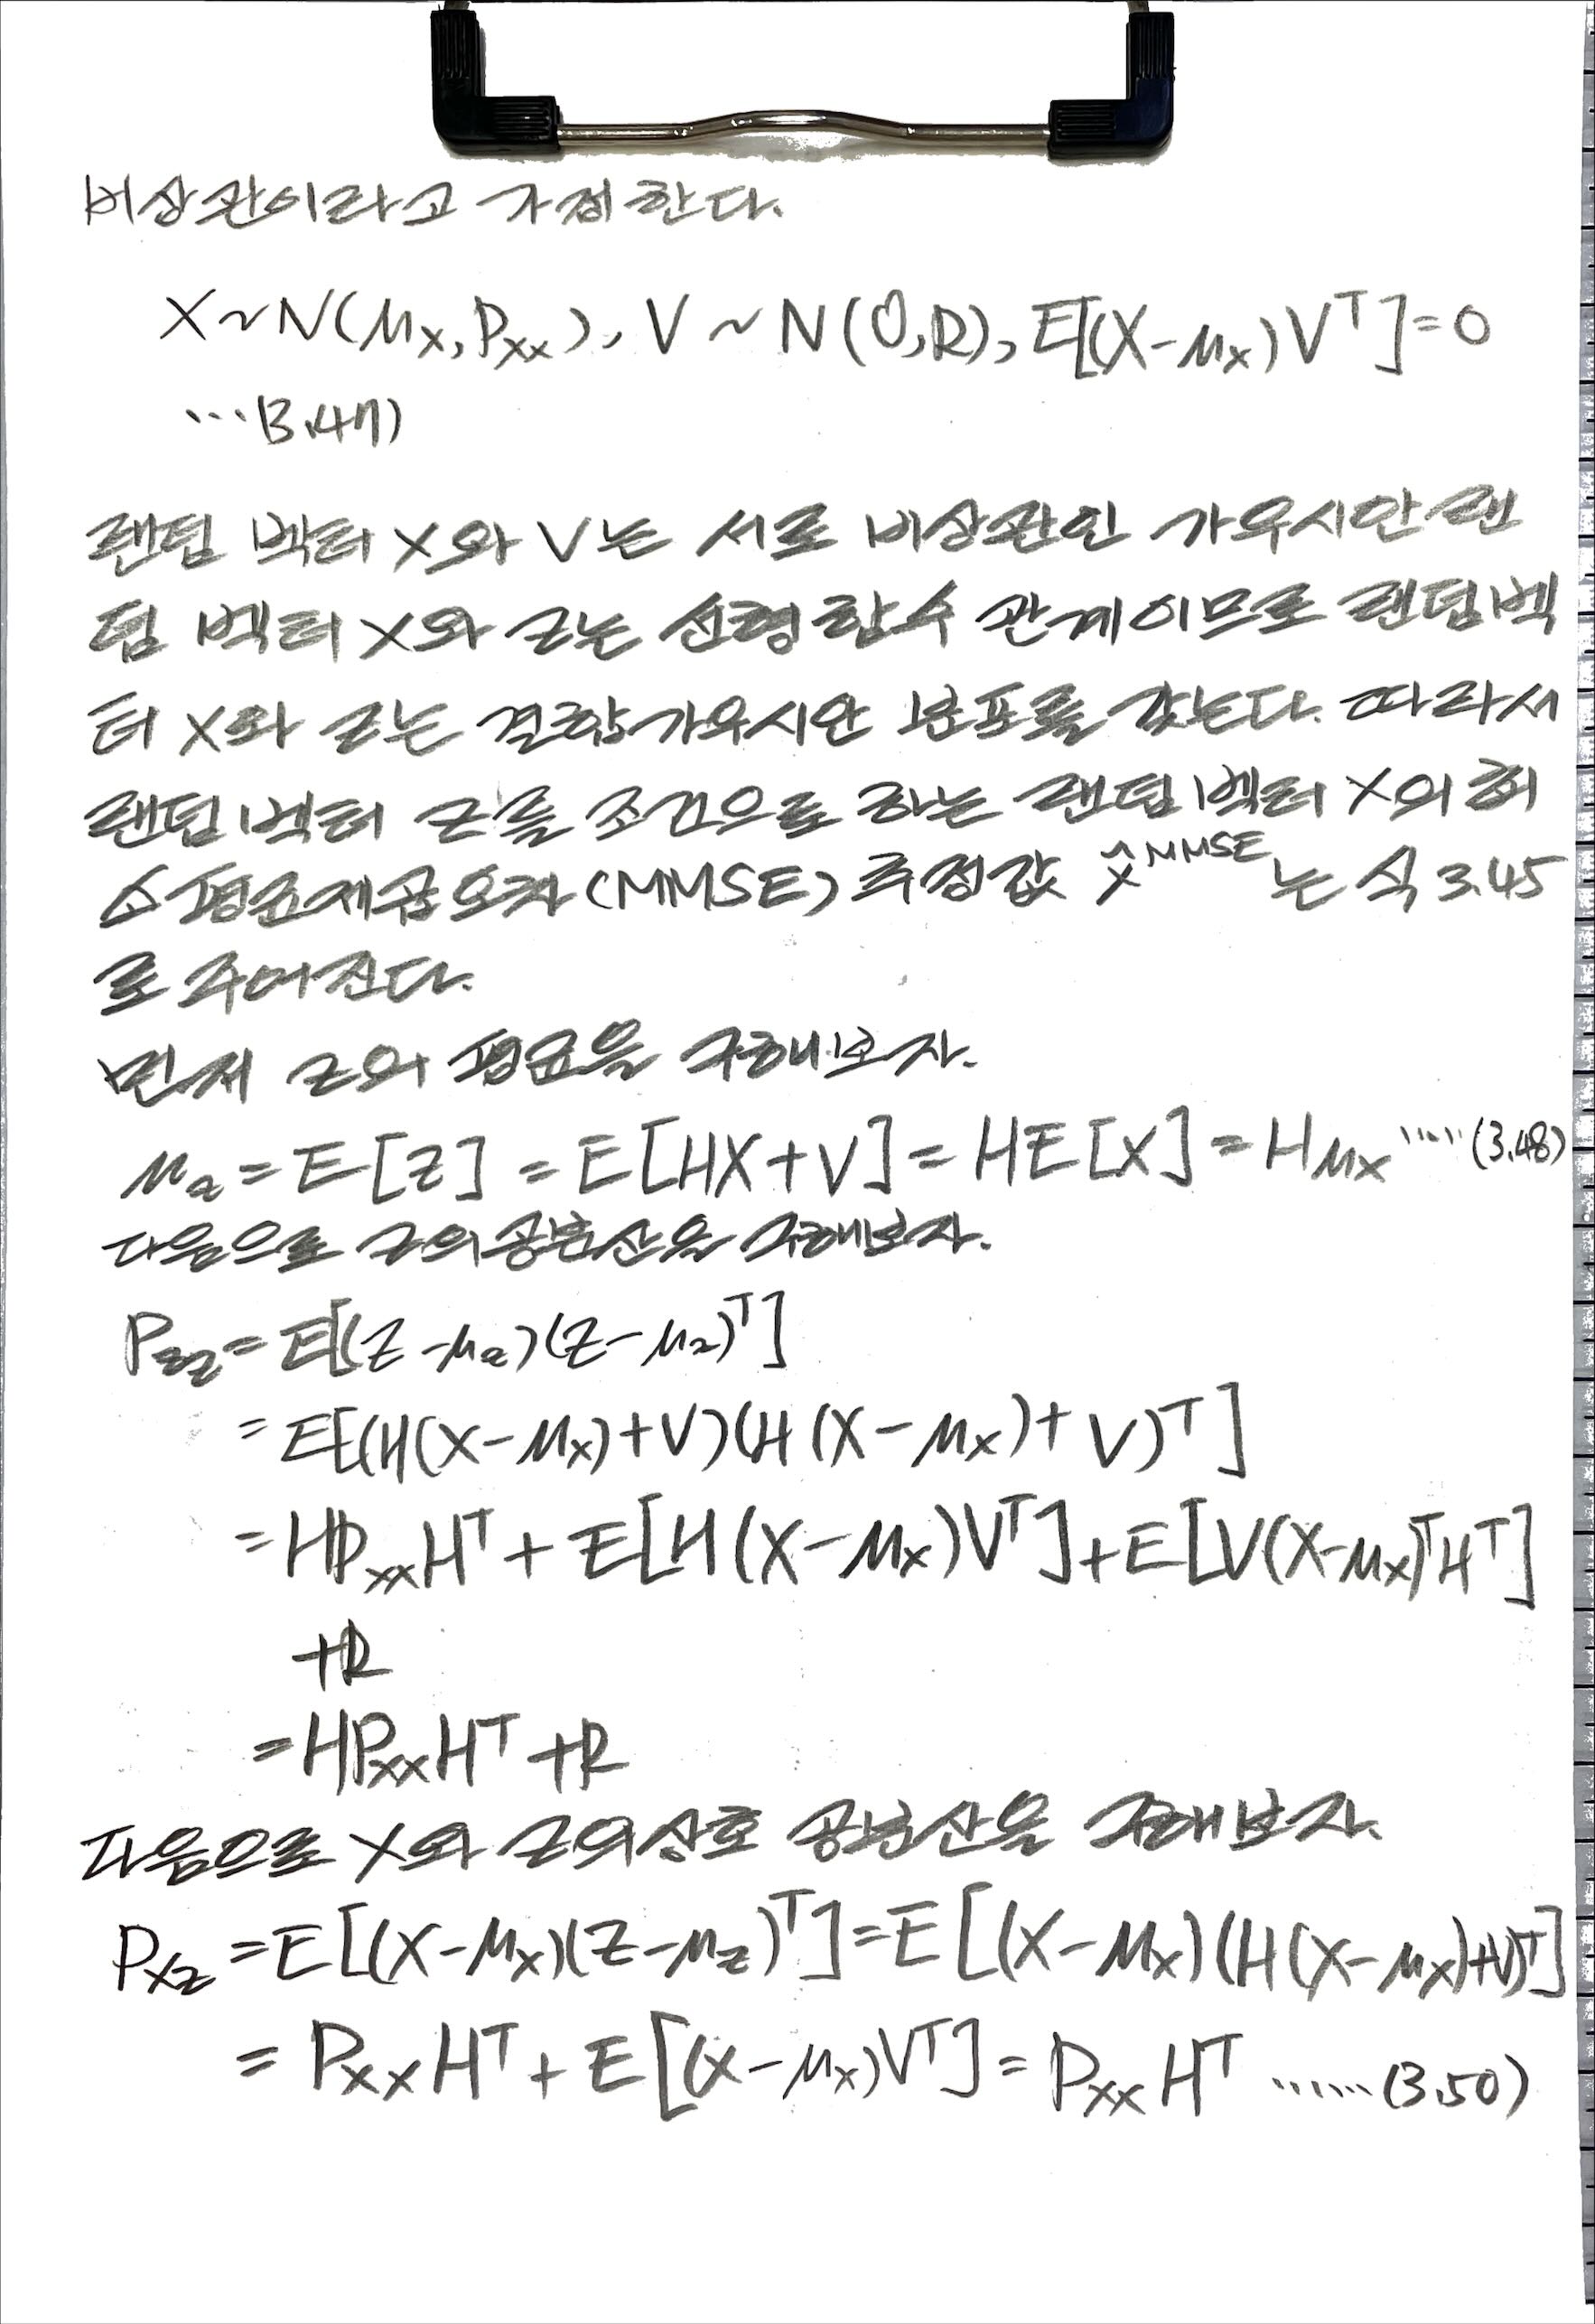 비상관이라고 가정한다.
X ~ N(μx, Pxx), V ~ N(0, R), E[(X-μx)V^T] = 0
...(3.47)
랜덤 벡터 X와 V는 서로 비상관인 가우시안 랜
덤 벡터 X와 Z는 선형 함수 관계이므로 랜덤벡
터 X와 Z는 결합가우시안 분포를 갖는다. 따라서
랜덤벡터 Z를 조건으로 하는 랜덤벡터 X의 최
소평균제곱오차(MMSE) 추정값 x̂^MMSE는 식 3.45
로 주어진다.
먼저 Z의 평균을 구해보자.
μz = E[Z] = E[HX+V] = HE[X] = Hμx ..... (3.48)
다음으로 Z의 공분산을 구해보자.
Pzz = E[(Z-μz)(Z-μz)^T]
= E[(H(X-μx)+V)(H(X-μx)+V)^T]
= HPxxH^T + E[H(X-μx)V^T] + E[V(X-μx)^T H^T]
+R
= HPxxH^T + R
다음으로 X와 Z의 상호 공분산을 구해보자.
Pxz = E[(X-μx)(Z-μz)^T] = E[(X-μx)(H(X-μx)+V)^T]
= PxxH^T + E[(X-μx)V^T] = PxxH^T ...... (3.50)